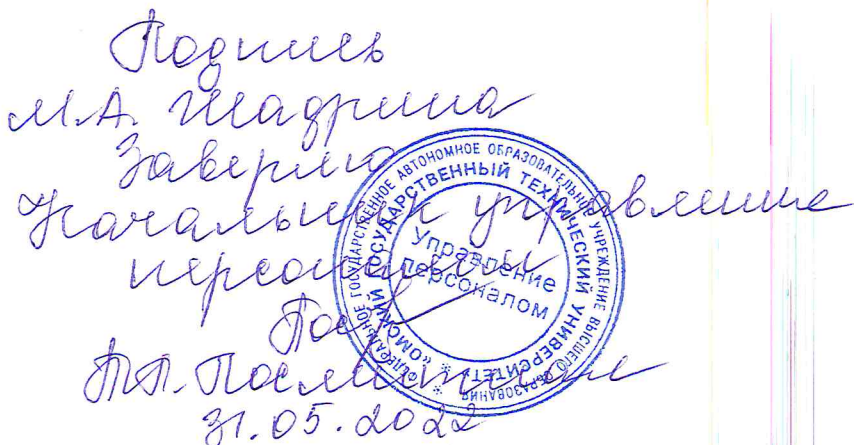 Подпись
М.А. Шадрина
Заверяю
Начальник управление
персоналом
П.П.
31.05.2022
ФЕДЕРАЛЬНОЕ ГОСУДАРСТВЕННОЕ АВТОНОМНОЕ ОБРАЗОВАТЕЛЬНОЕ УЧРЕЖДЕНИЕ ВЫСШЕГО ОБРАЗОВАНИЯ
«ОМСКИЙ ГОСУДАРСТВЕННЫЙ ТЕХНИЧЕСКИЙ УНИВЕРСИТЕТ»
Управление
персоналом